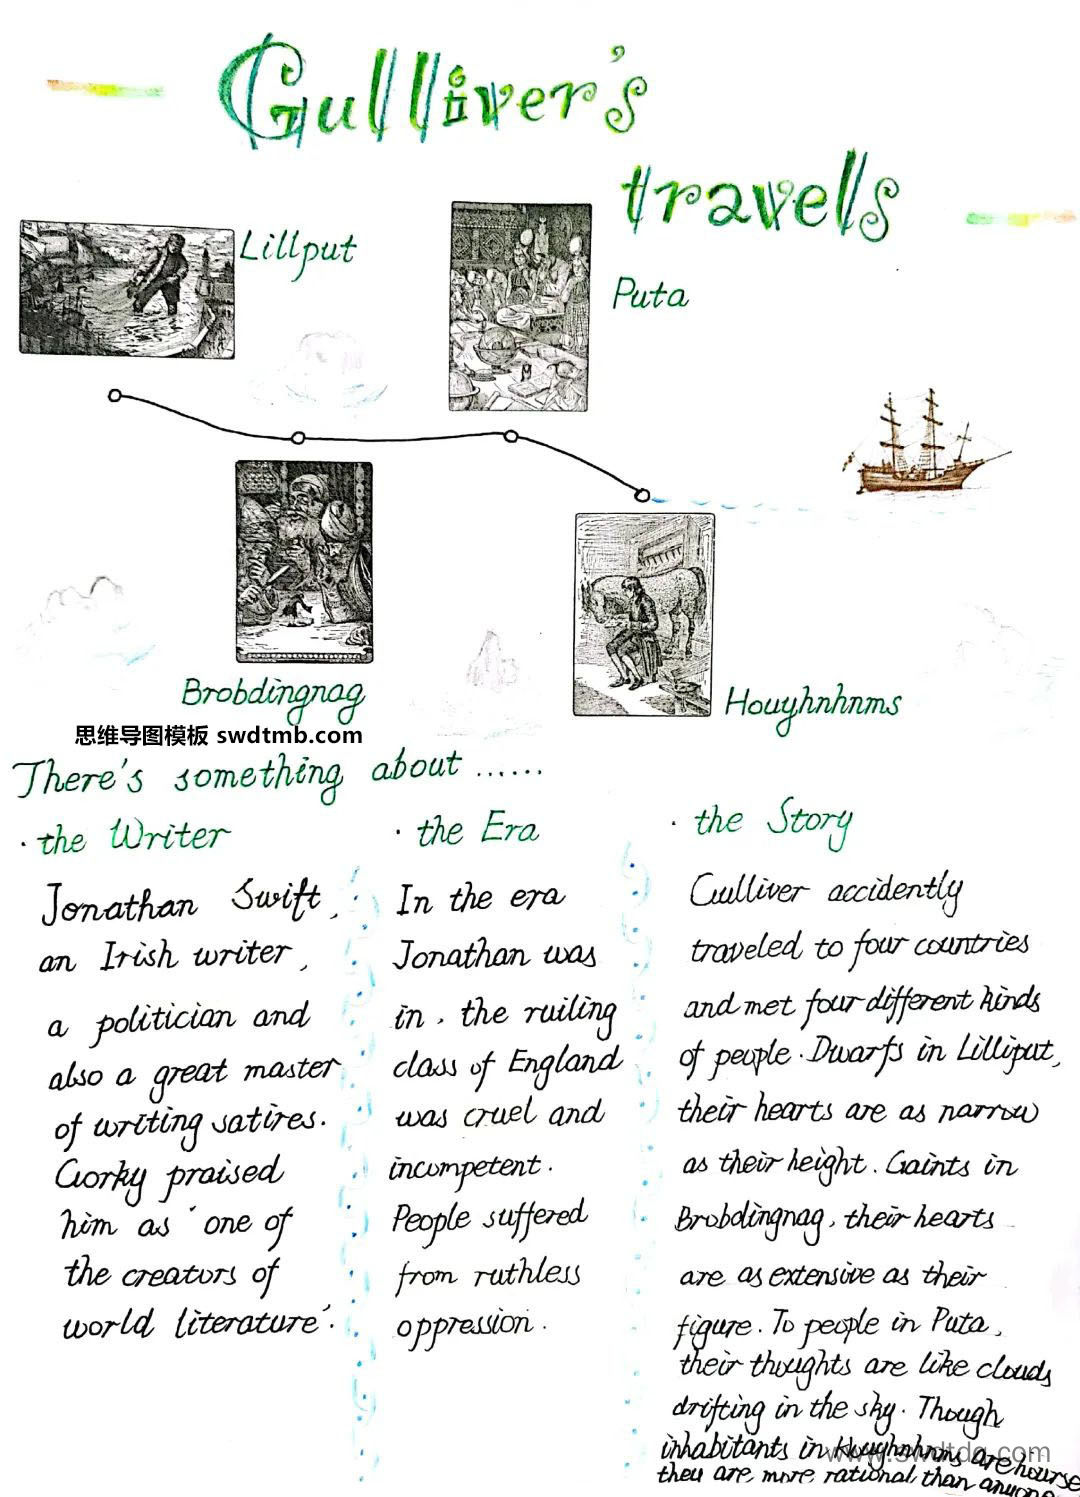 Gulliver's
travels
Lillput
Puta
Brobdingnag
Houyhnhnms
思维导图模板 swdtmb.com
There's something about ......
· the Writer
Jonathan Swift,
an Irish writer,
a politician and
also a great master
of writing satires.
Gorky praised
him as 'one of
the creators of
world literature'.
· the Era
In the era
Jonathan was
in, the ruiling
class of England
was cruel and
incompetent.
People suffered
from ruthless
oppression.
· the Story
Gulliver accidently
traveled to four countries
and met four different kinds
of people. Dwarfs in Lilliput,
their hearts are as narrow
as their height. Gaints in
Brobdingnag, their hearts
are as extensive as their
figure. To people in Puta,
their thoughts are like clouds
drifting in the sky. Though
inhabitants in Houyhnhnms are hourse
they are more rational than anyone